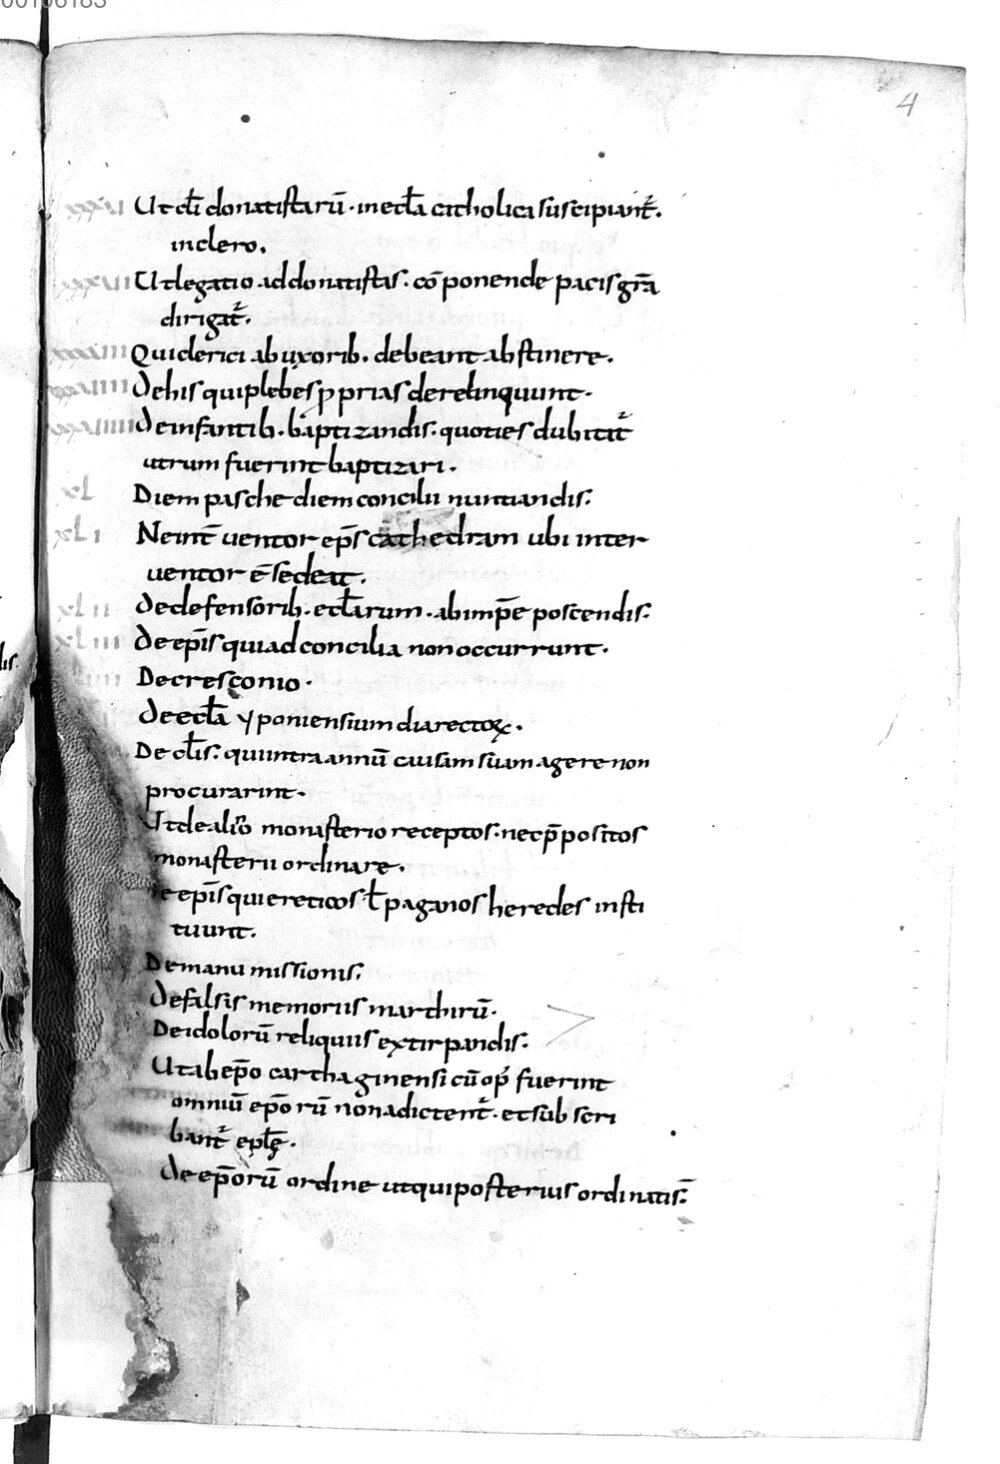 00106183
4
xxxvi Ut cl̄i donatistarū · in eccl̄a catholica suscipiant᷑.
in clero.
xxxvii Ut legatio ad donatistas · cō ponende pacis gr̄a
dirigat᷑.
xxxviii Quid clerici ab uxorib. debeant abstinere.
xxxviiii De his qui plebes ꝓprias derelinquunt.
De infantib. baptizandis. quoties dubitat᷑
utrum fuerint baptizati.
xL Diem pasche diem concilii nuntiandis.
xLi Ne int̄ uentor ep̄s cathedram ubi inter
uentor ē sedeat.
xLii De defensorib. eccl̄arum. ab imp̄e poscendis.
xLiii De ep̄is qui ad concilia non occurrunt.
De cresconio.
De eccl̄a yponiensium diarectoꝝ.
De cl̄is. qui intra annū causam suam agere non
procurarint.
Ut de alio monasterio receptos. nec p̄positos
monasterii ordinare.
e ep̄is qui ereticos ł paganos heredes insti
tuunt.
De manu missionis.
De falsis memoriis marthirū.
De idolorū reliquiis extirpandis.
Ut ab ep̄o carthaginensi cū op᷑ fuerint
omniū ep̄orū nona dictent᷑. et sub scri
bant᷑ epl̄ę.
De ep̄orū ordine ut qui posterius ordinatis.